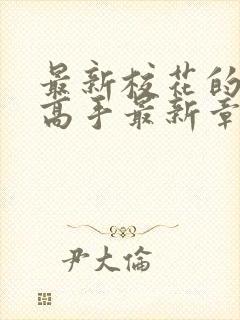 最新校花的
高手最新章
尹大倫